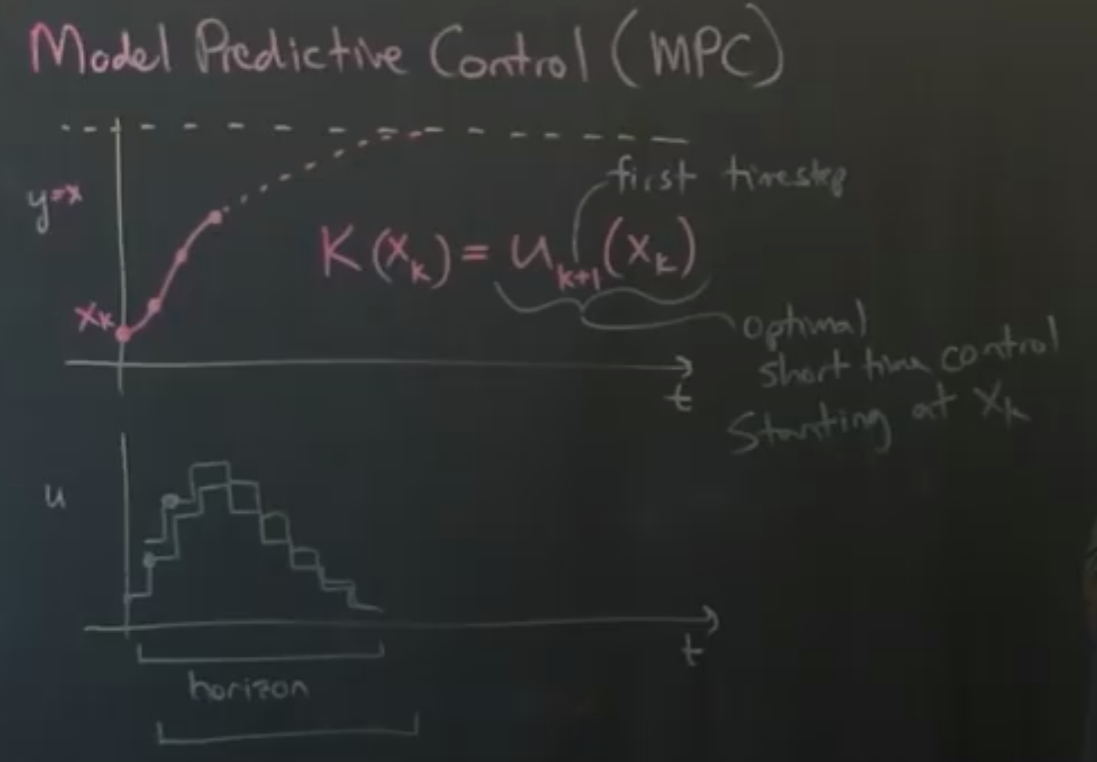 Model Predictive Control (MPC)
first timestep
y=x
K(xₖ) = uₖ₊₁(xₖ)
xₖ
optimal
short time control
starting at xₖ
t
u
t
horizon